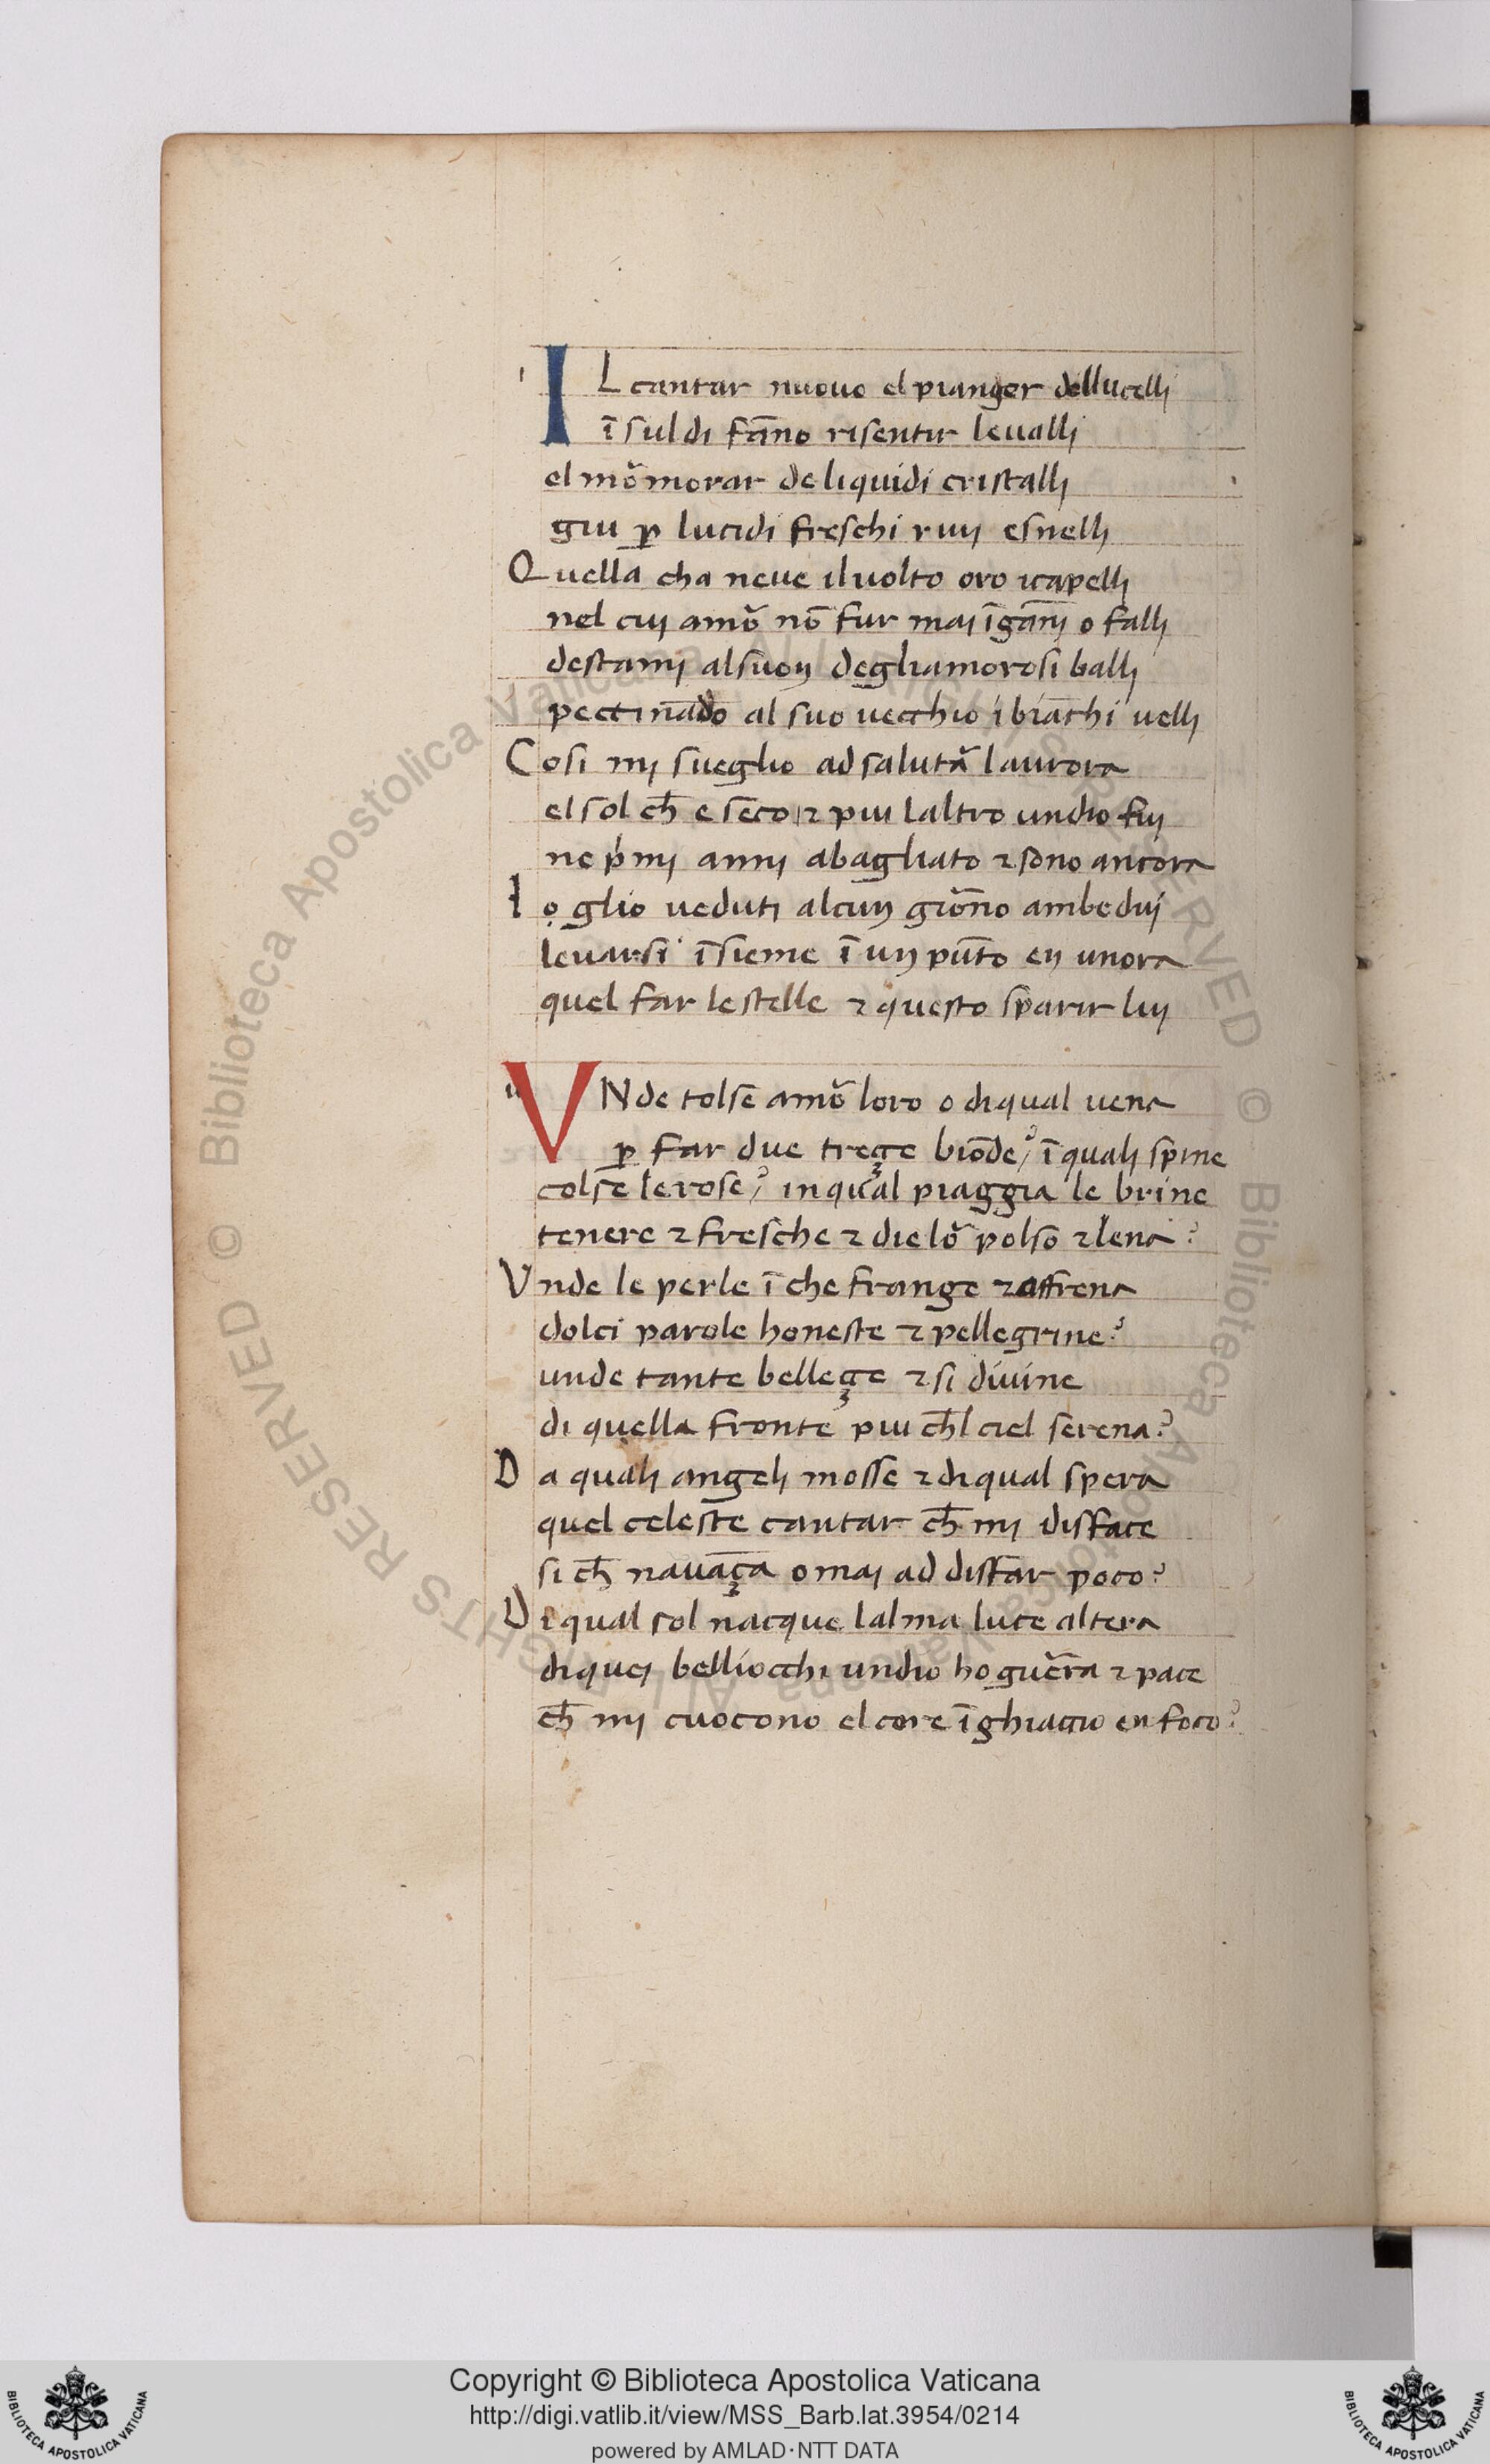 IL cantar nuouo el pianger dellucelli
ī sul di fāno risentir leualli
el mōmorar de liquidi cristalli
giu ꝑ lucidi freschi riui esnelli
Quella cha neue iluolto oro icapelli
nel cui amō nō fur mai īgāni o falli
destami alsuon degliamorosi balli
pectinādo al suo uecchio i biāchi uelli
Cosi mi sueglio ad salutā laurora
el sol ch̄ e seco ⁊ piu laltro undio fui
ne p̄mi anni abagliato ⁊ sono ancora
Io glio ueduti alcun giōno ambedui
leuarsi īsieme ī un pūto en unora
quel far le stelle ⁊ questo sparir lui
VNde tolse amō loro o diqual uena
ꝑ far due treçe biōde? ī quali spine
colse le rose? in qual piaggia le brine
tenere ⁊ fresche ⁊ die lō polso ⁊ lena?
Vnde le perle ī che frange ⁊ affrena
dolci parole honeste ⁊ pellegrine?
unde tante belleçe ⁊ si diuine
di quella fronte piu ch̄l ciel serena?
Da quali angeli mosse ⁊ diqual spera
quel celeste cantar ch̄ mi disface
si ch̄ nauāça omai ad disfar poco?
Di qual sol nacque lalma luce altera
di quei belliocchi undio ho guēra ⁊ pace
ch̄ mi cuocono el core īghiaccio en foco?
© Biblioteca Apostolica Vaticana ALL RIGHTS RESERVED © Biblioteca Apostolica Vaticana ALL RIGHTS RESERVED
Copyright © Biblioteca Apostolica Vaticana
http://digi.vatlib.it/view/MSS_Barb.lat.3954/0214
powered by AMLAD·NTT DATA
BIBLIOTECA APOSTOLICA VATICANA
BIBLIOTECA APOSTOLICA VATICANA